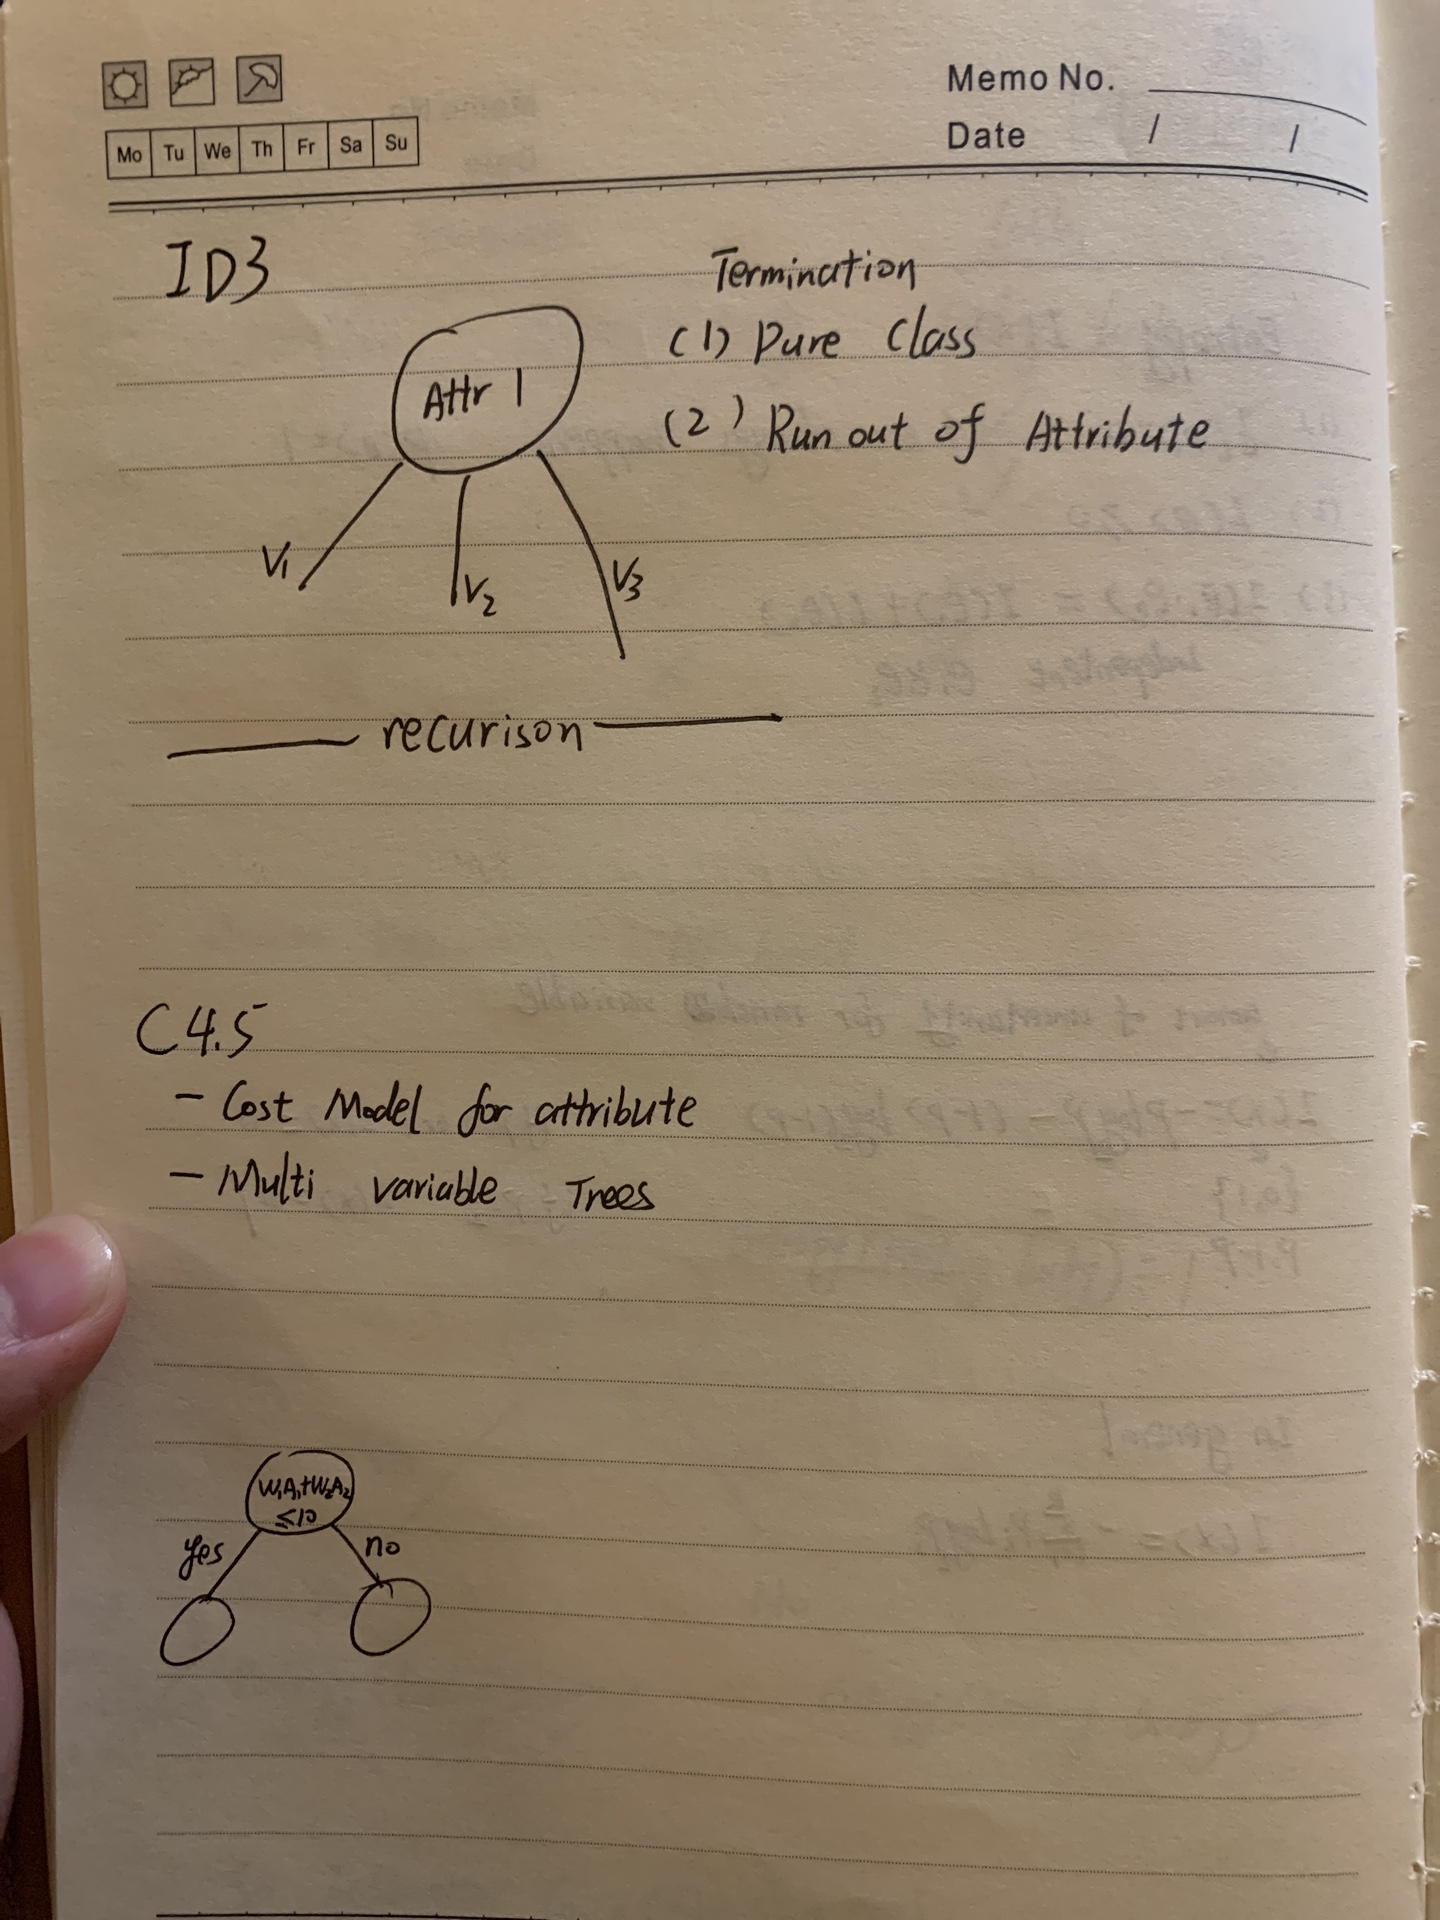 Memo No.
Mo Tu We Th Fr Sa Su
Date / /
ID3
Termination
(1) Pure Class
(2) Run out of Attribute
Attr 1
V1
V2
V3
recurison
C4.5
- Cost Model for attribute
- Multi variable Trees
W1A1+W2A2
≤10
yes
no